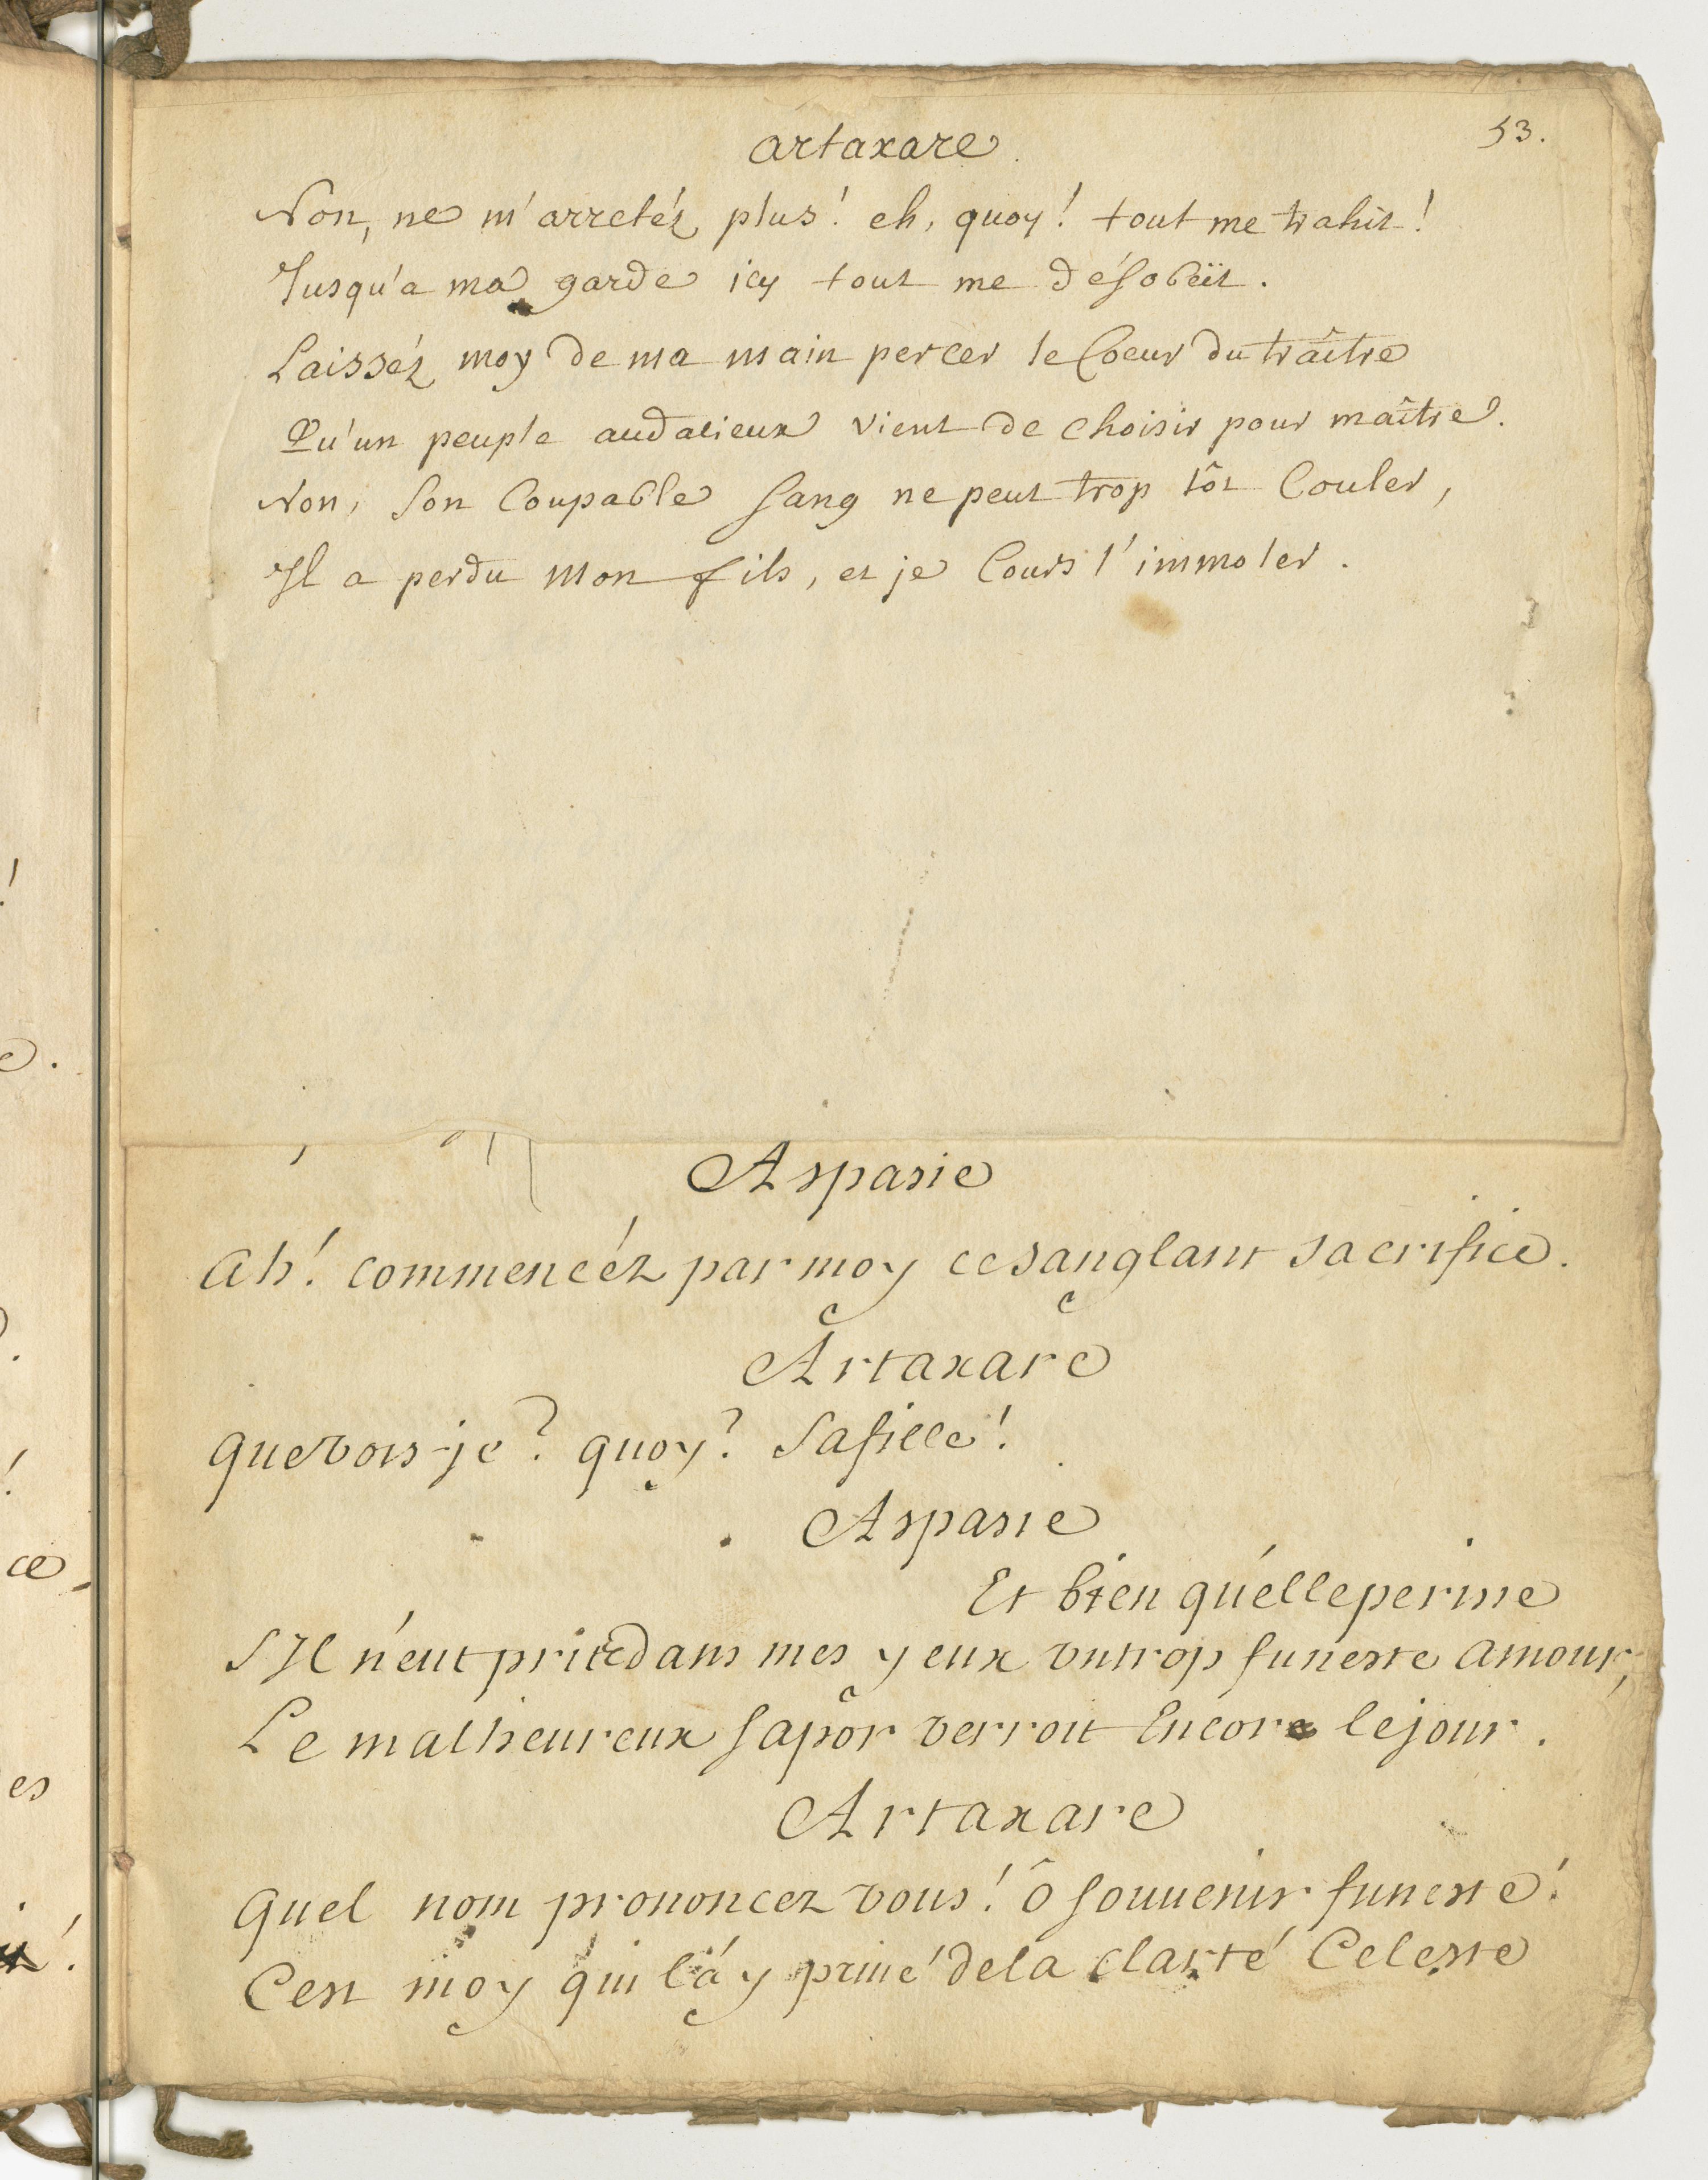 53.
artaxare
Non, ne m'arretéz plus! eh, quoy! tout me trahit!
Jusqu'a ma garde icy tout me désobeït.
Laisséz moy de ma main percer le Coeur du traître
Qu'un peuple audacieux vient de choisir pour maître.
Non, son Coupable sang ne peut trop tôt Couler,
Il a perdu mon fils, et je Cours l'immoler.
Aspasie
Ah! commencéz par moy ce sanglant sacrifice.
Artaxare
que vois-je? quoy? sa fille!
Aspasie
Et bien qu'elle perisse
S'Il n'eut pris dans mes yeux un trop funeste amour,
Le malheureux sapor verroit Encore le jour.
Artaxare
quel nom prononcez vous! ô souuenir funeste!
Cest moy qui l'ay priué de la clarté Celeste
ce,
es